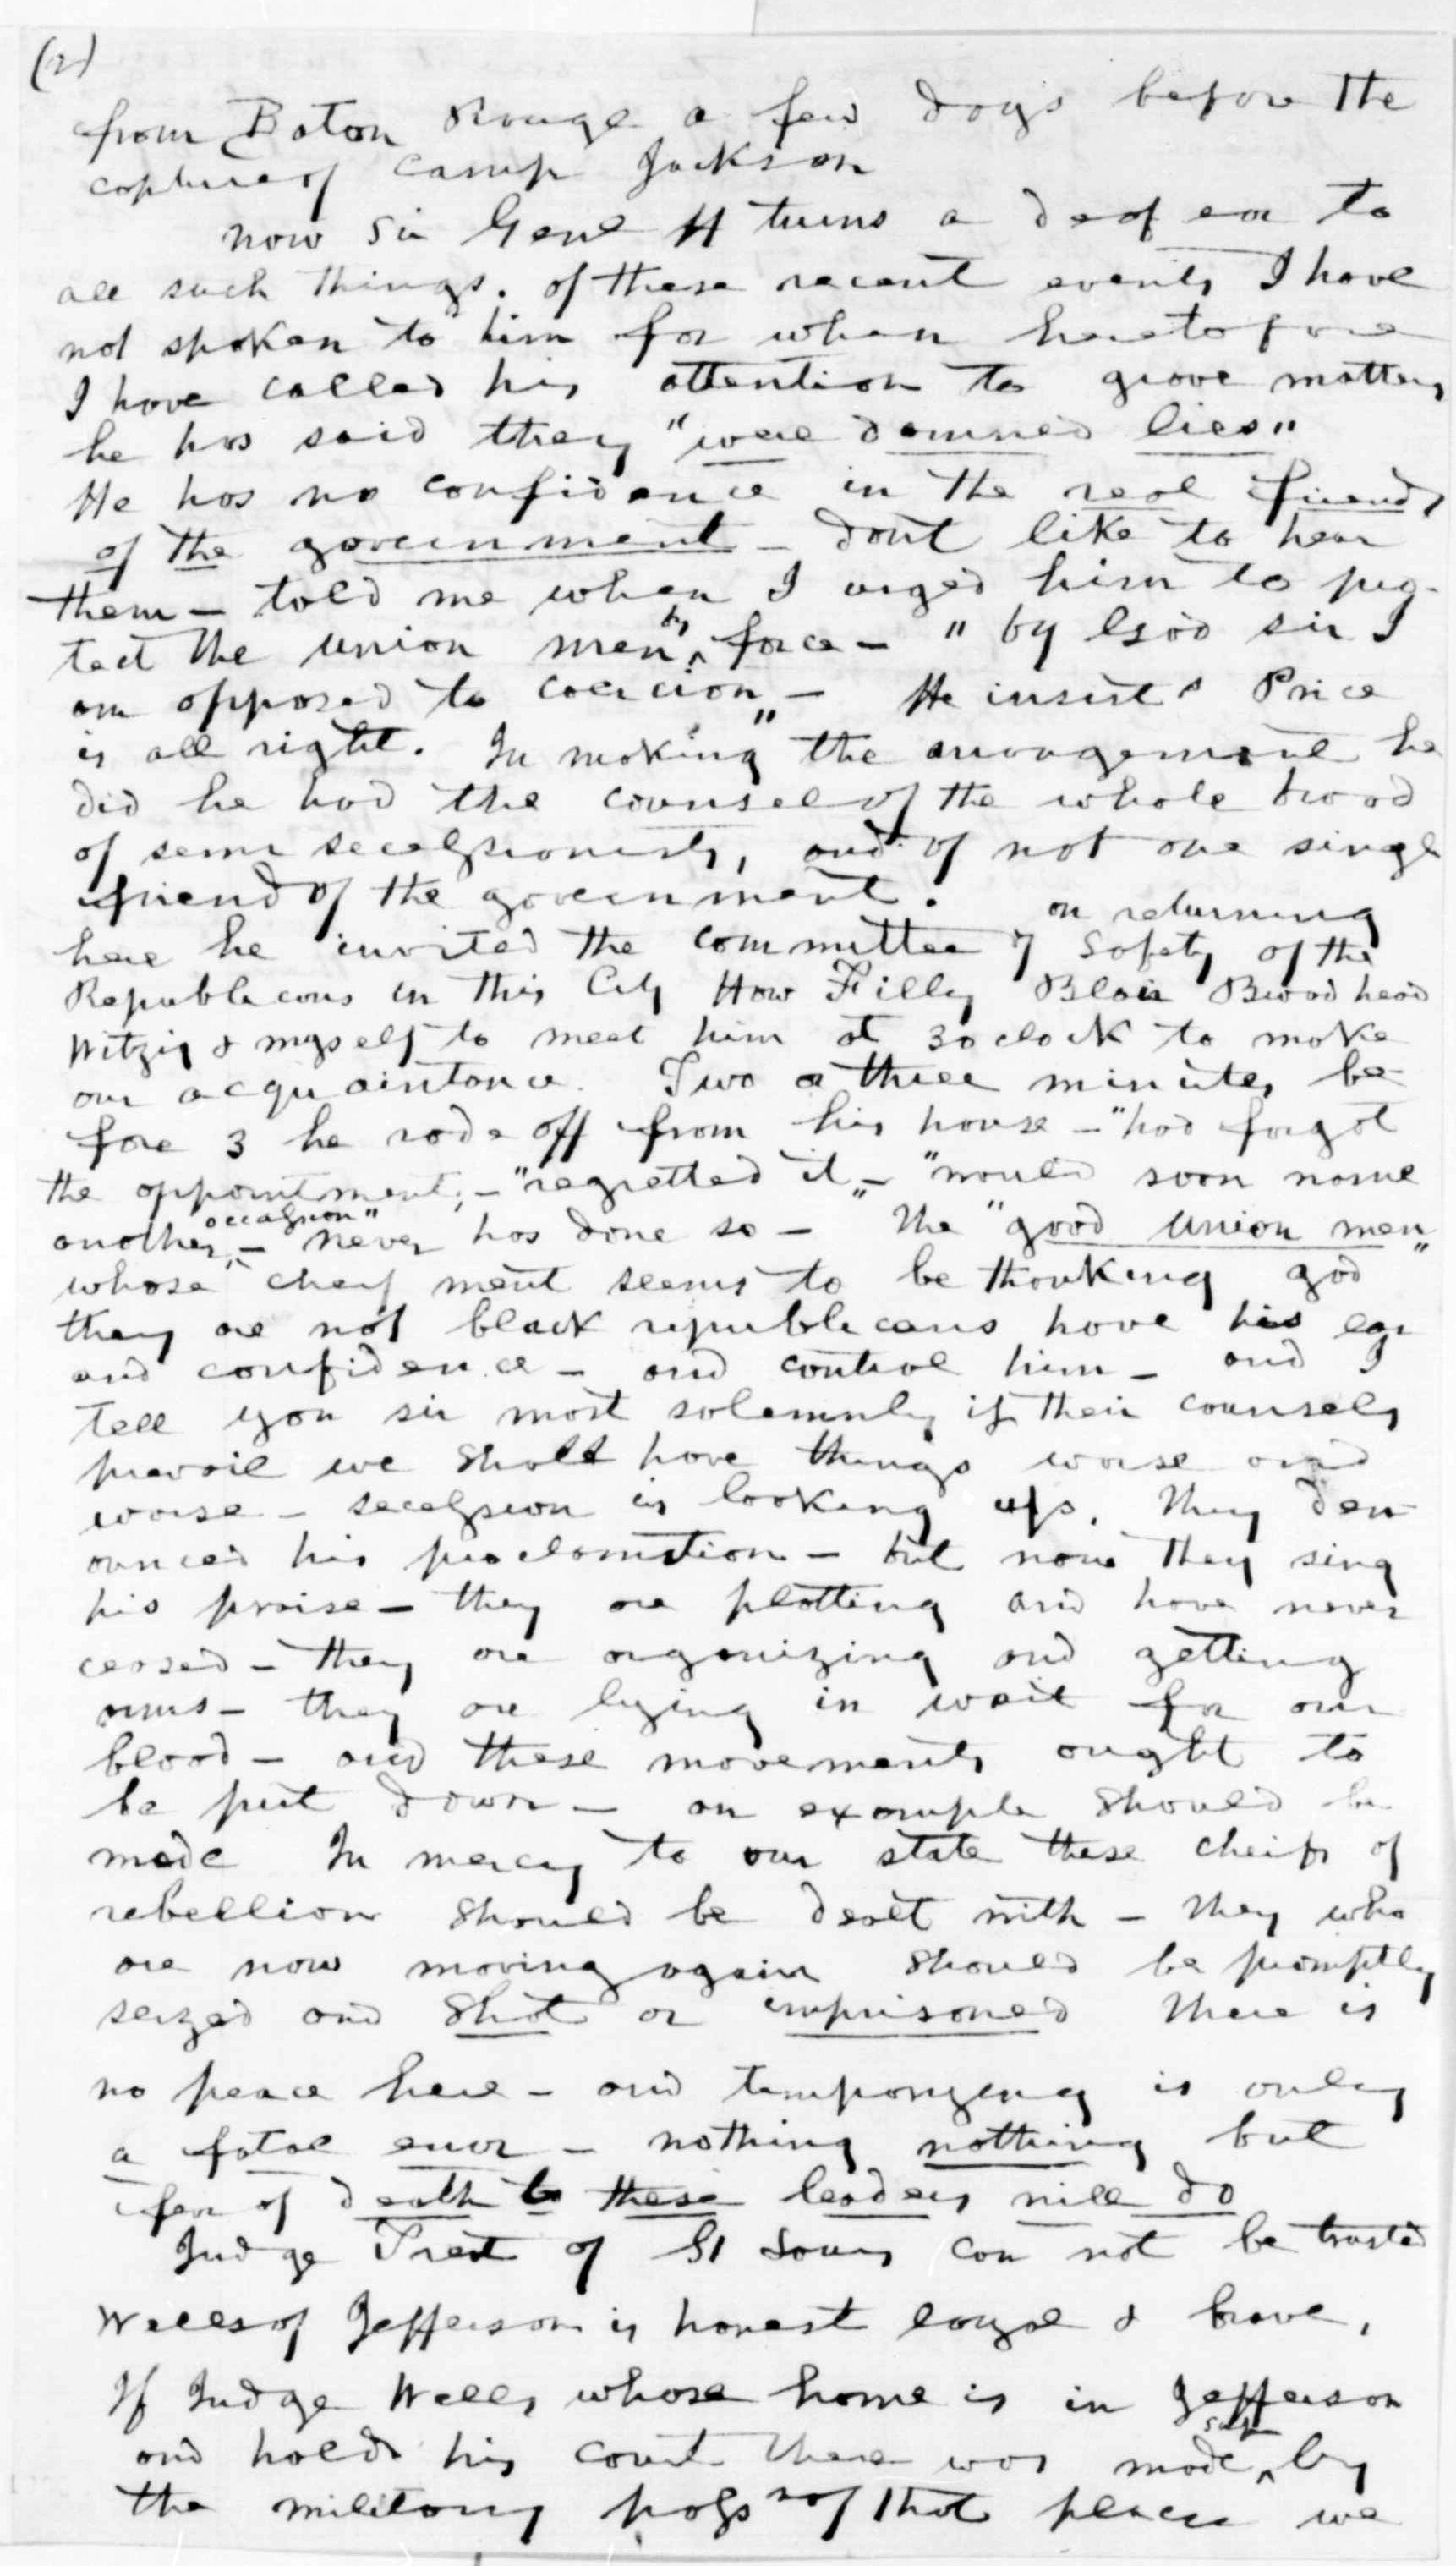 (2)
from Baton Rouge a few days before the
capture of Camp Jackson
now Sir Genl H turns a deaf ear to
all such things. of these recent events I have
not spoken to him for when heretofore
I have called his attention to grave matters
he has said they "were damned lies"
He has no confidence in the real friends
of the government – dont like to hear
them – told me when I urged him to pro-
tect the union men by force – "by God sir I
am opposed to coercion" – He insists Price
is all right. In making the arrangement he
did he had the counsel of the whole brood
of semi secessionists, and of not one single
friend of the government. on returning
here he invited the committee of Safety of the
Republicans in this City How Filley Blair Broadhead
Witzig & myself to meet him at 3 oclock to make
our acquaintance. Two or three minutes be-
fore 3 he rode off from his house – "had forgot
the appointment, – "regretted it" – "would soon name
another occassion" – never has done so – The "good union men"
whose cheif merit seems to be thanking god
they are not black republicans have his ear
and confidence – and control him – and I
tell you sir most solemnly if their counsels
prevail we shall have things worse and
worse – secession is looking up. They den-
ounced his proclamation – but now they sing
his praise – they are plotting and have never
ceased – they are organizing and getting
arms – they are lying in wait for our
blood – and these movements ought to
be put down – an example should be
made In mercy to our state these cheifs of
rebellion should be dealt with – They who
are now moving again should be promptly
seized and shot or imprisoned There is
no peace here – and temporizing is only
a fatal error – nothing nothing but
fear of death to these leaders will do
Judge Treat of St Louis can not be trusted
Wells of Jefferson is honest loyal & brave,
If Judge Wells whose home is in Jefferson
and holds his court there was made safe by
the military possn of that place we